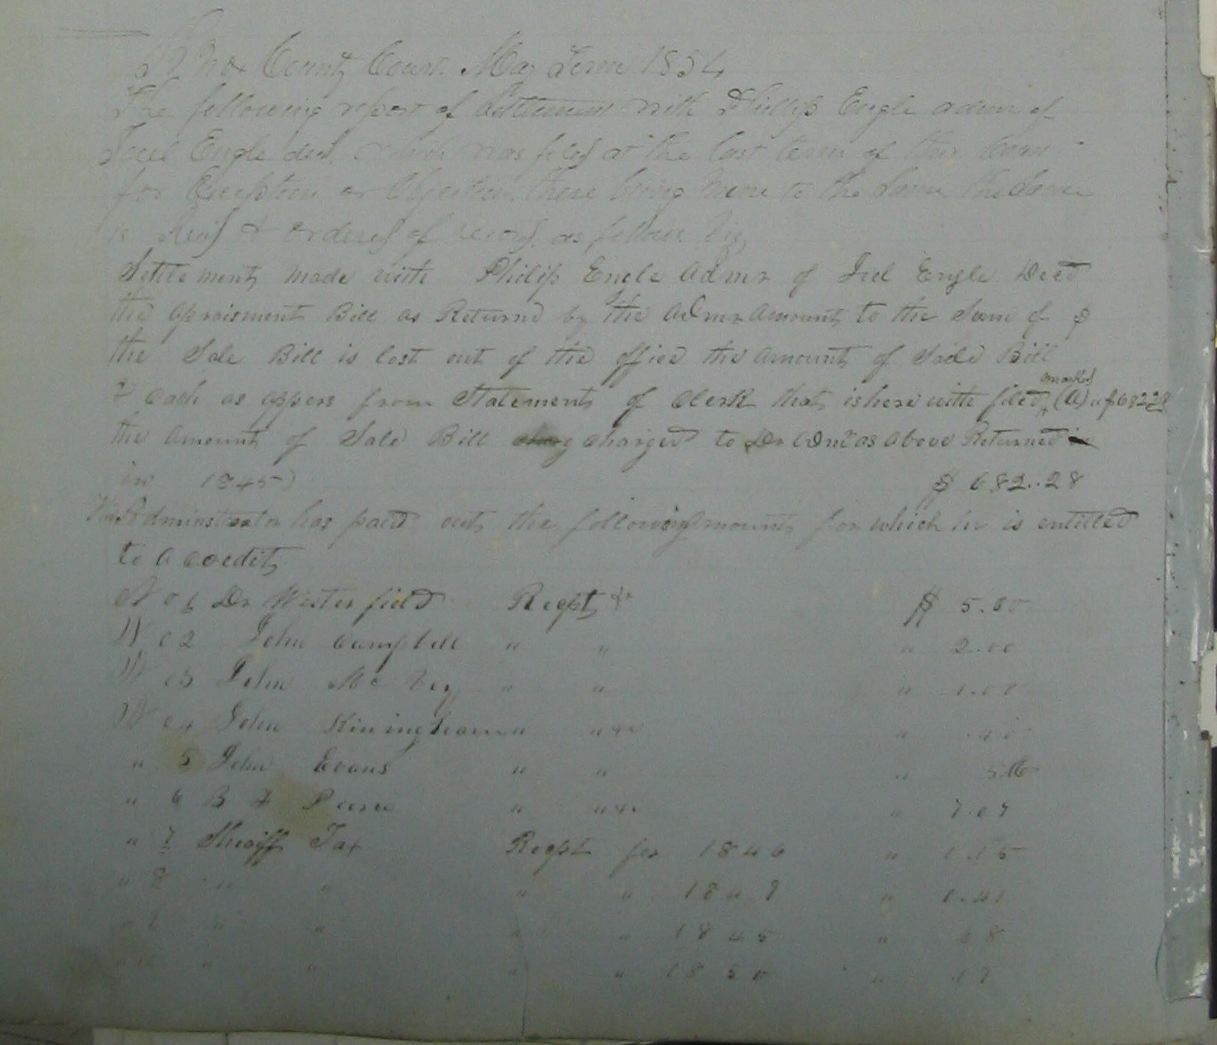 Knox County Court May Term 1854
The following report of Settlement with Phillip Engle admr of
Joel Engle decd which was filed at the last term of this Court
for Exception or Objection there being none to the Same the Same
is & ordered of record as follows Viz
Settlement made with Philip Engle Admr of Joel Engle Decd
the apraisment Bill as Returnd by the Admr Amount to the Sum of $
the Sale Bill is lost out of the office the Amount of Sale Bill
& Cash as appers from Statements of Clerk that is here with filed marked (A) is $682.28
the Amount of Sale Bill charged to as above Returned
in 1845) $ 682..28
The Adminstrator has paid out the following amounts for which he is entitled
to a Credit
No 1 Dr Westerfield Recpt $ 5.50
No 2 John Campbell " " " 2.00
No 3 John Mc Vey " " " 1.00
No 4 John Kiningham " " " .40
" 5 John Evans " " "
" 6 B F " " " 7.07
" 7 Sheriff Tax Recpt for 1846 " 1.15
" 8 " " " " 1847 "
" " " " " 1845 " 48
" 10 " " " " 1850 " 17